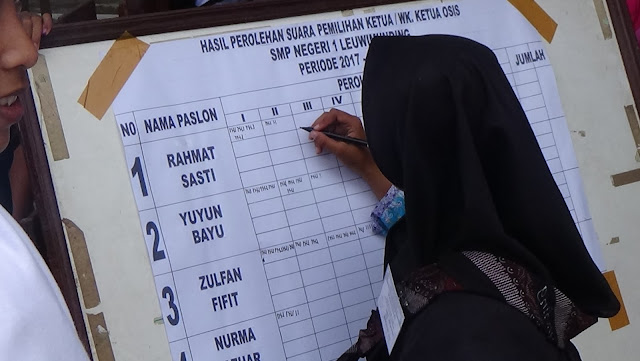 HASIL PEROLEHAN SUARA PEMILIHAN KETUA / WK. KETUA OSIS
SMP NEGERI 1 LEUWIMUNDING
PERIODE 2017
NO NAMA PASLON I II III IV JUMLAH
1 RAHMAT
SASTI
2 YUYUN
BAYU
3 ZULFAN
FIFIT
NURMA